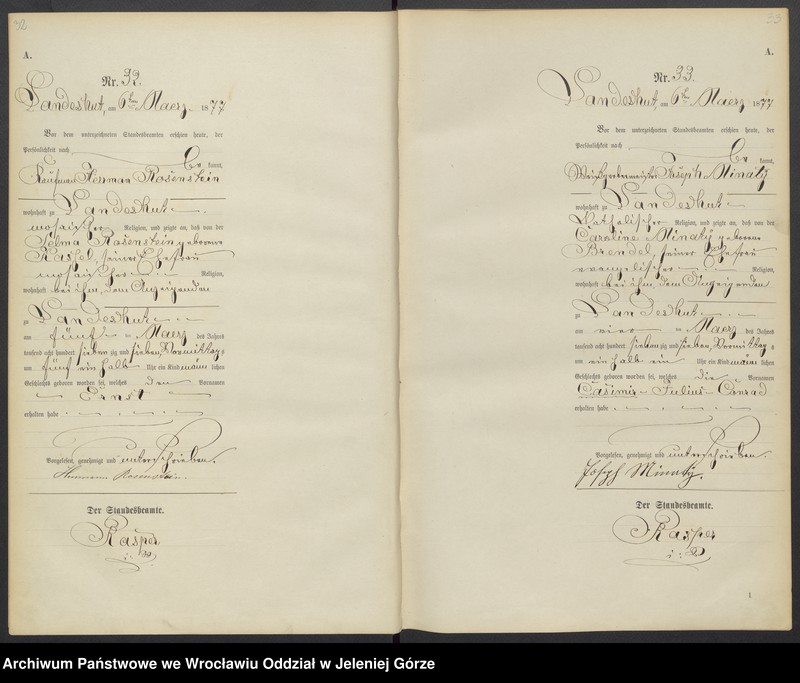 32
A.
Nr. 32.
Landeshut, am 6ten Maerz 1877
Vor dem unterzeichneten Standesbeamten erschien heute, der
Persönlichkeit nach
be kannt,
Kaufmann Herman Rosenstein
wohnhaft zu Landeshut
mosaischer Religion, und zeigte an, daß von der
Selma Rosenstein geborene
Kassel, seiner Ehefrau
mosaischer Religion,
wohnhaft bei ihm, dem Anzeigenden
zu Landeshut
am fünf in Maerz des Jahres
tausend acht hundert siebenzig und sieben, Vormittags
um fünf ein halb Uhr ein Kind männlichen
Geschlechts geboren worden sei, welches den Vornamen
Ernst
erhalten habe
Vorgelesen, genehmigt und unterschrieben.
Hermann Rosenstein.
Der Standesbeamte.
Kasper
i: V
33
A.
Nr. 33.
Landeshut, am 6ten Maerz 1877
Vor dem unterzeichneten Standesbeamten erschien heute, der
Persönlichkeit nach
be kannt,
Joseph Minaty
wohnhaft zu Landeshut
katholischer Religion, und zeigte an, daß von der
Caroline Minaty geborene
Brendel, seiner Ehefrau
evangelischer Religion,
wohnhaft bei ihm, dem Anzeigenden
zu Landeshut
am vier in Maerz des Jahres
tausend acht hundert siebenzig und sieben, Vormittags
um ein halb ein Uhr ein Kind männlichen
Geschlechts geboren worden sei, welches die Vornamen
Casimir Julius Conrad
erhalten habe
Vorgelesen, genehmigt und unterschrieben.
Joseph Minaty.
Der Standesbeamte.
Kasper
i: V
1
Archiwum Państwowe we Wrocławiu Oddział w Jeleniej Górze